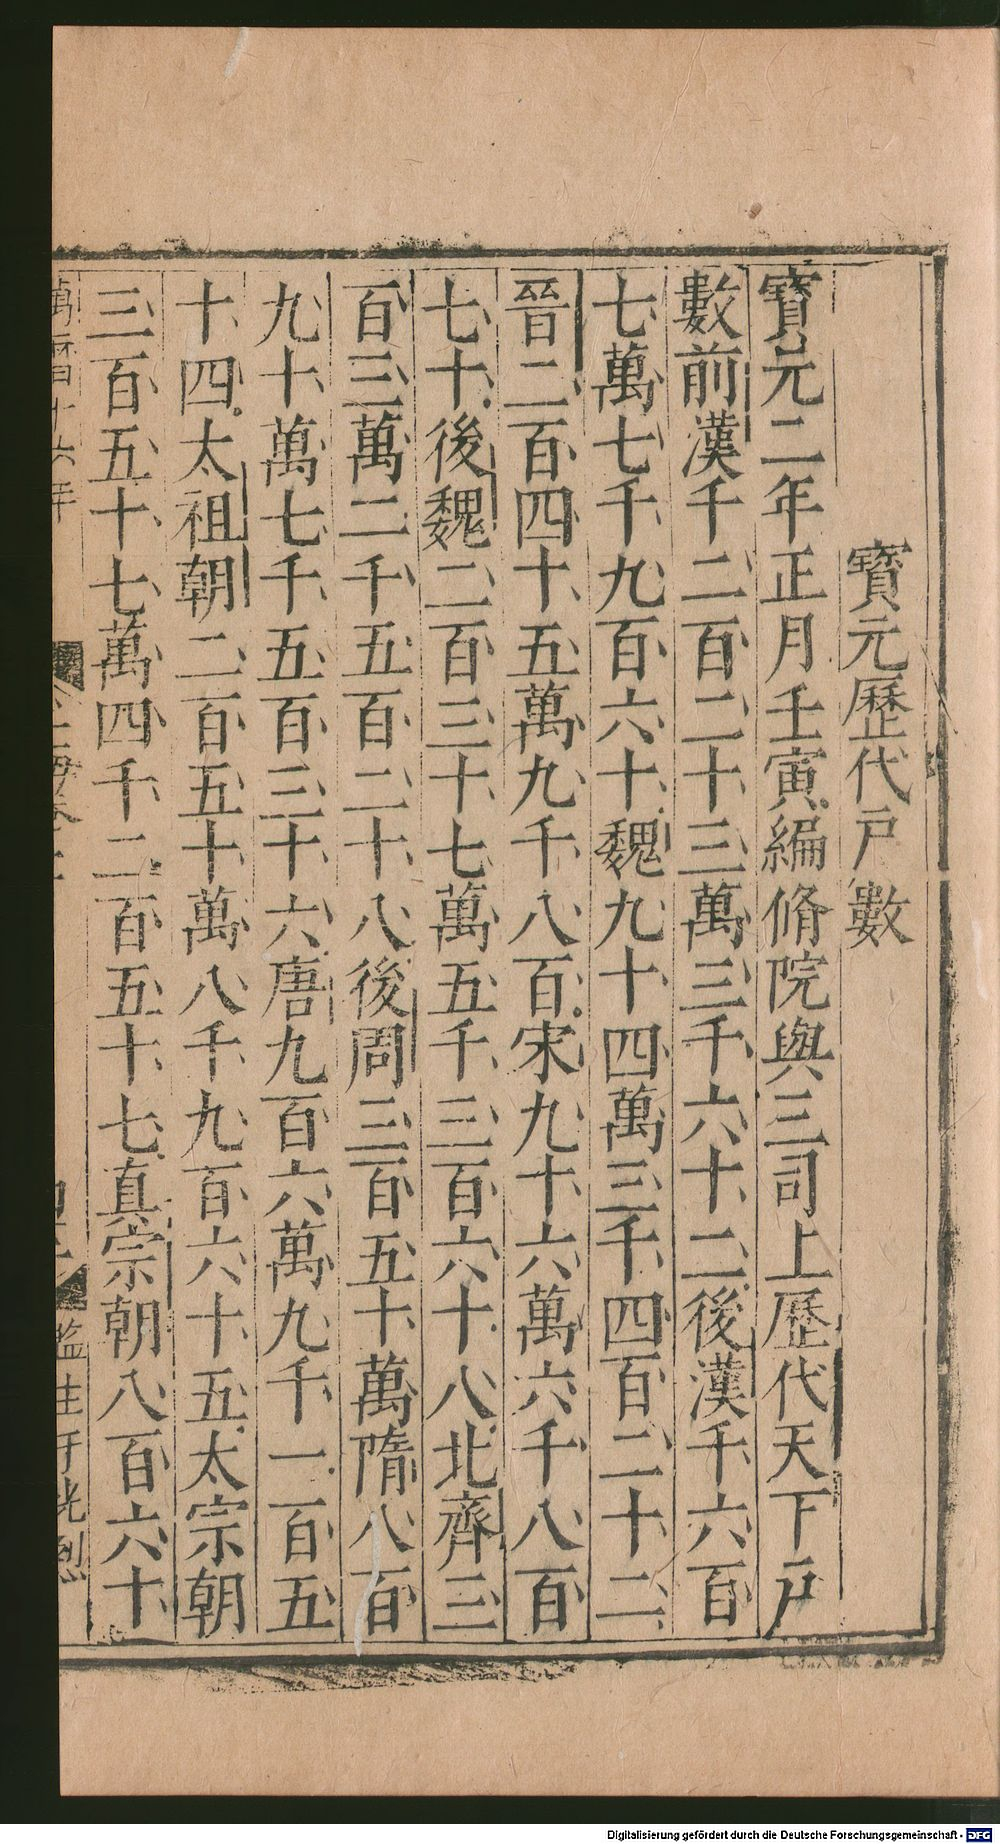 寶元歷代戶數
寶元二年正月壬寅編脩院與三司上歷代天下戶
數前漢千二百二十三萬三千六十二後漢千六百
七萬七千九百六十魏九十四萬三千四百二十二
晉二百四十五萬九千八百宋九十六萬六千八百
七十後魏二百三十七萬五千三百六十八北齊三
百三萬二千五百二十八後周三百五十萬隋八百
九十萬七千五百三十六唐九百六萬九千一百五
十四太祖朝二百五十萬八千九百六十五太宗朝
三百五十七萬四千二百五十七真宗朝八百六十
萬曆十六年
監生
Digitalisierung gefördert durch die Deutsche Forschungsgemeinschaft - DFG